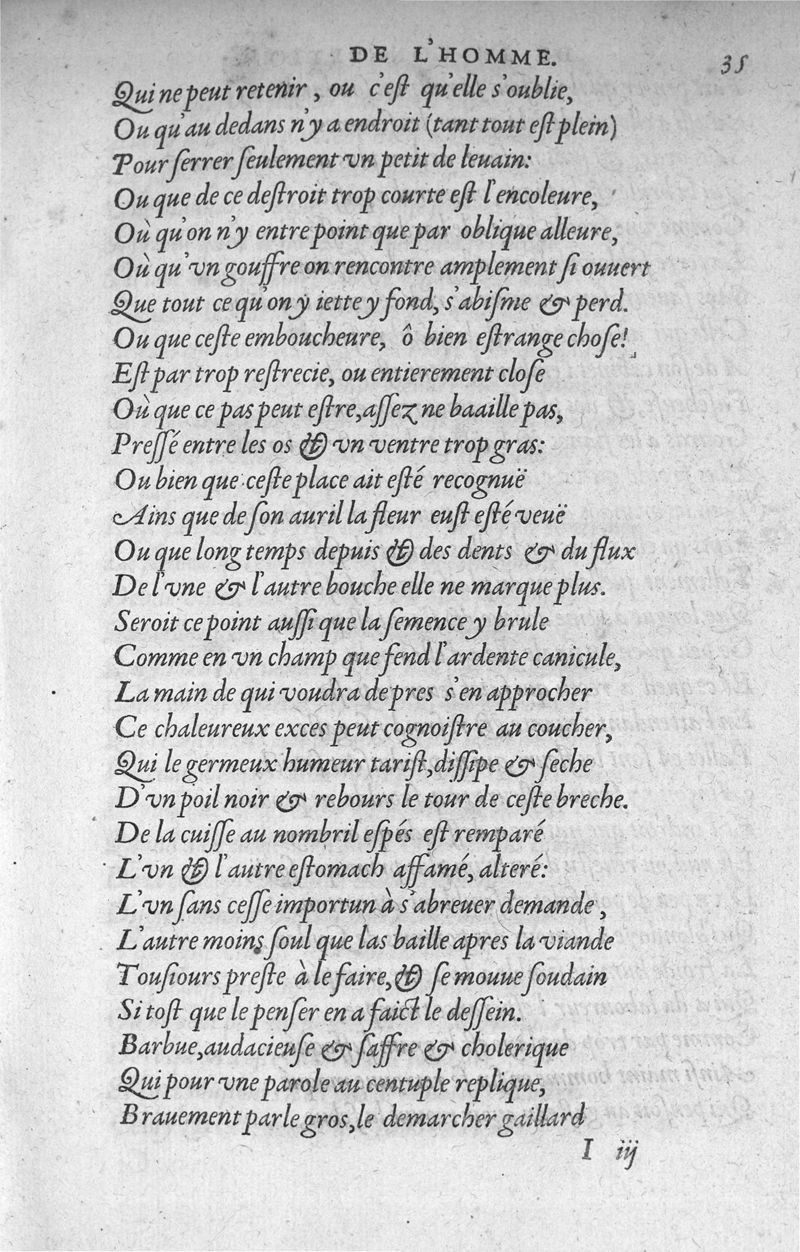 DE L'HOMME. 35
Qui ne peut retenir, ou c'eſt qu'elle s'oublie,
Ou qu'au dedans n'y a endroit (tant tout eſt plein)
Pour ſerrer ſeulement vn petit de leuain:
Ou que de ce deſtroit trop courte eſt l'encoleure,
Où qu'on n'y entre point que par oblique alleure,
Où qu'vn gouffre on rencontre amplement ſi ouuert
Que tout ce qu'on y iette y fond, s'abiſme & perd.
Ou que ceſte emboucheure, ô bien eſtrange choſe!
Eſt par trop reſtrecie, ou entierement cloſe
Où que ce pas peut eſtre, aſſez ne baaille pas,
Preſſé entre les os & vn ventre trop gras:
Ou bien que ceſte place ait eſté recognuë
Ains que de ſon auril la fleur euſt eſté veuë
Ou que long temps depuis & des dents & du flux
De l'vne & l'autre bouche elle ne marque plus.
Seroit ce point auſſi que la ſemence y brule
Comme en vn champ que fend l'ardente canicule,
La main de qui voudra de pres s'en approcher
Ce chaleureux exces peut cognoiſtre au coucher,
Qui le germeux humeur tariſt, diſſipe & ſeche
D'vn poil noir & rebours le tour de ceſte breche.
De la cuiſſe au nombril eſpés eſt remparé
L'vn & l'autre eſtomach affamé, alteré:
L'vn ſans ceſſe importun à s'abreuer demande,
L'autre moins ſoul que las baille apres la viande
Touſiours preſte à le faire, & ſe mouue ſoudain
Si toſt que le penſer en a faict le deſſein.
Barbue, audacieuſe & ſaffre & cholerique
Qui pour vne parole au centuple replique,
Brauement parle gros, le demarcher gaillard
I iij